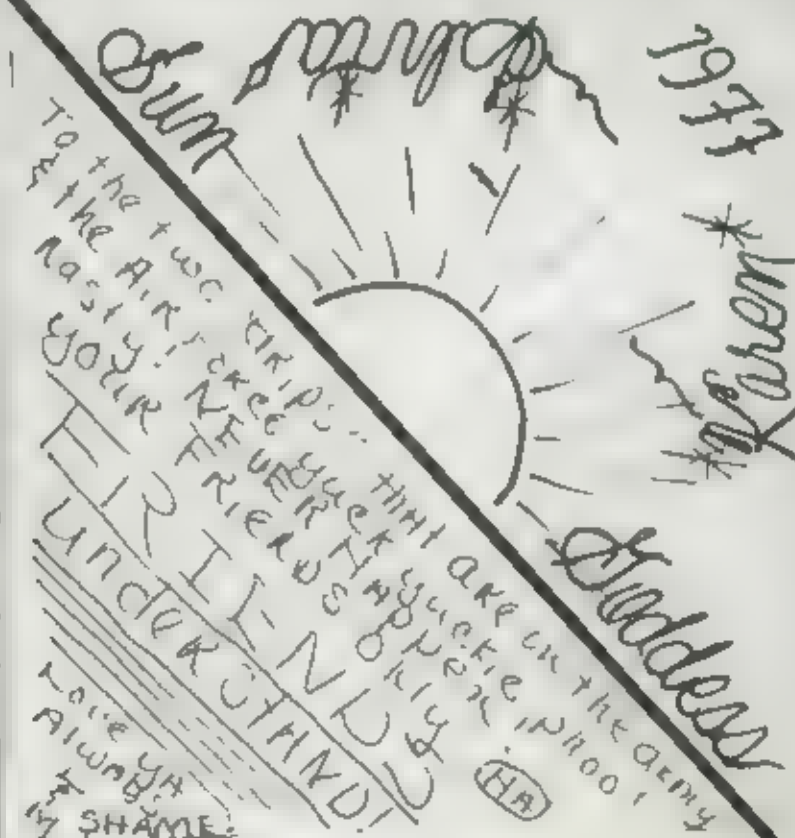 Sun
1977
Karen
Goddess
To the two drips.. that are in the army
& the AIR FORCE yuck yuckie
nasty! NEVER HAPPEN!
YOUR FRIENDS only
HA
FRIENDS
UNDERSTAND!
Love ya
Always
SHAME.